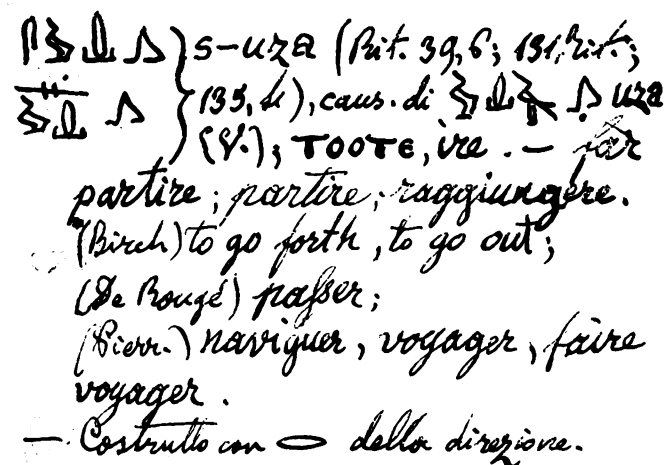 } s-uza (Rit. 39,6; 131, Rit.;
135, 4), caus. di uza
(V.); ΤΟΟΤΕ, ire. — far
partire; partire; raggiungere.
(Birch) to go forth, to go out;
(De Rougé) passer;
(Pierr.) naviguer, voyager, faire
voyager.
— Costrutto con della direzione.